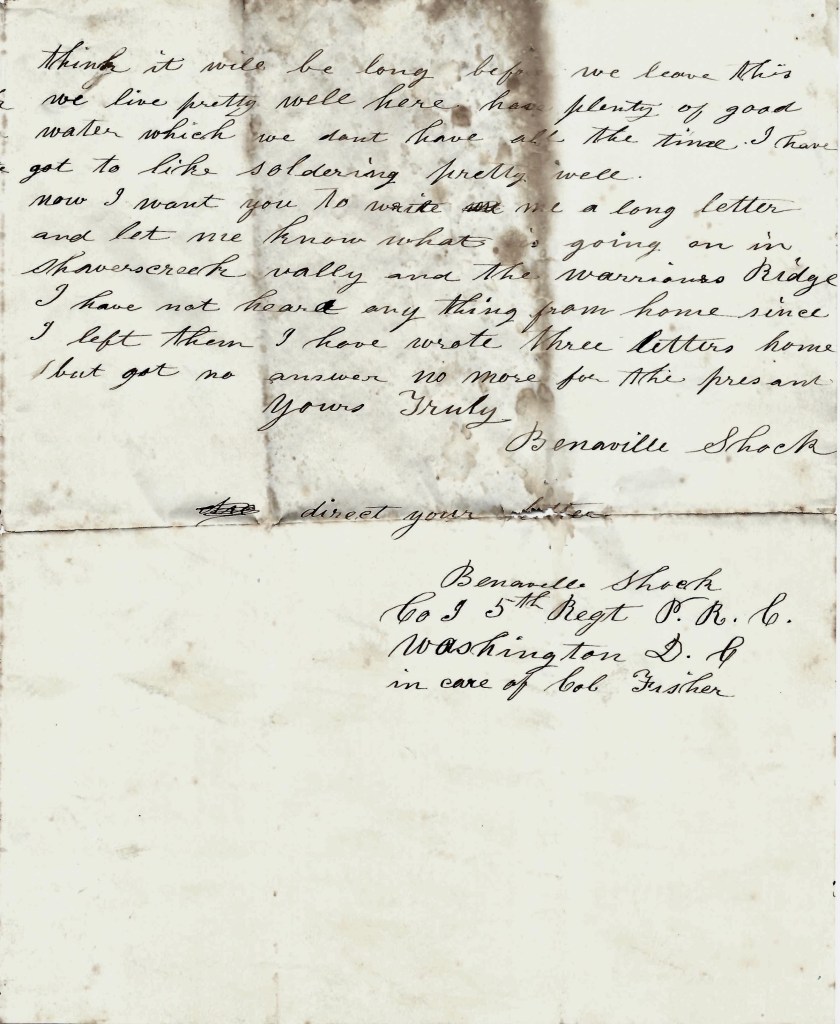 think it will be long before we leave this
we live pretty well here have plenty of good
water which we dont have all the time. I have
got to like soldering pretty well.
now I want you to write me a long letter
and let me know what is going on in
Shaverscreek vally and the warriours Ridge
I have not heard any thing from home since
I left them I have wrote three letters home
but got no answer no more for the presant
Yours Truly
Benaville Shock
direct your letter
Benaville Shock
Co I 5th Regt P. R. C.
Washington D. C
in care of Col Fisher